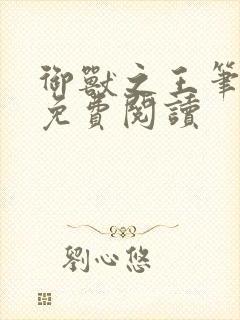 御獸之王筆
免費閱讀
劉心悠